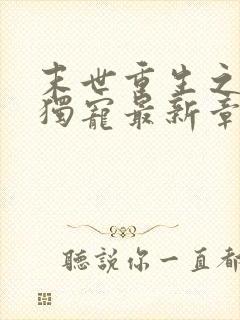 末世重生之
獨寵最新章
聽説你一直都